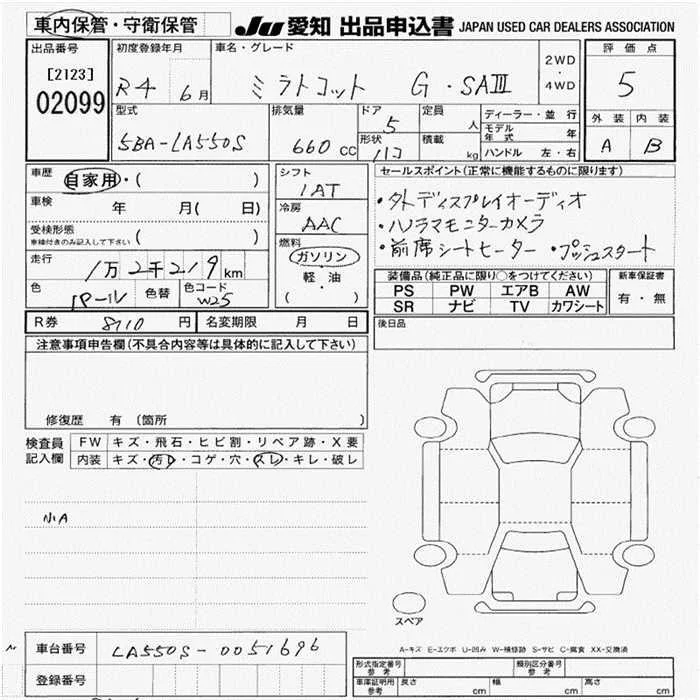 車内保管・守衛保管
JU 愛知 出品申込書 JAPAN USED CAR DEALERS ASSOCIATION
出品番号
[2123]
02099
初度登録年月
R4 6月
車名・グレード
ミラトコット G・SAⅢ
2WD
・
4WD
評価点
5
外装 内装
A B
型式
5BA-LA550S
排気量
660 CC
ドア
5
形状
ハコ
定員
人
積載
kg
ディーラー・並行
モデル年式 年
ハンドル 左・右
車歴 自家用・( )
車検 年 月( 日)
受検形態
車検付きのみ記入して下さい ( )
走行 1万2千219km
色 パール 色替 色コード W25
シフト
IAT
冷房
AAC
燃料
ガソリン
軽・油
( )
セールスポイント(正常に機能するものに限ります)
・外ディスプレイオーディオ
・パノラマモニターカメラ
・前席シートヒーター ・プッシュスタート
装備品(純正品に限り○をつけてください)
PS PW エアB AW
SR ナビ TV カワシート
新車保証書
有・無
R券 8710 円 名変期限 月 日
後日品
注意事項申告欄(不具合内容等は具体的に記入して下さい)
修復歴 有 〔箇所 〕
検査員記入欄
FW キズ・飛石・ヒビ割・リペア跡・X要
内装 キズ・汚レ・コゲ・穴・スレ・キレ・破レ
小A
スペア
A-キズ E-エクボ U-凹み W-補修跡 S-サビ C-腐食 XX-交換済
車台番号 LA550S-0051696
登録番号
形式指定番号 参考
類別区分番号 参考
車庫証明用 参考 長さ cm 幅 cm 高さ cm